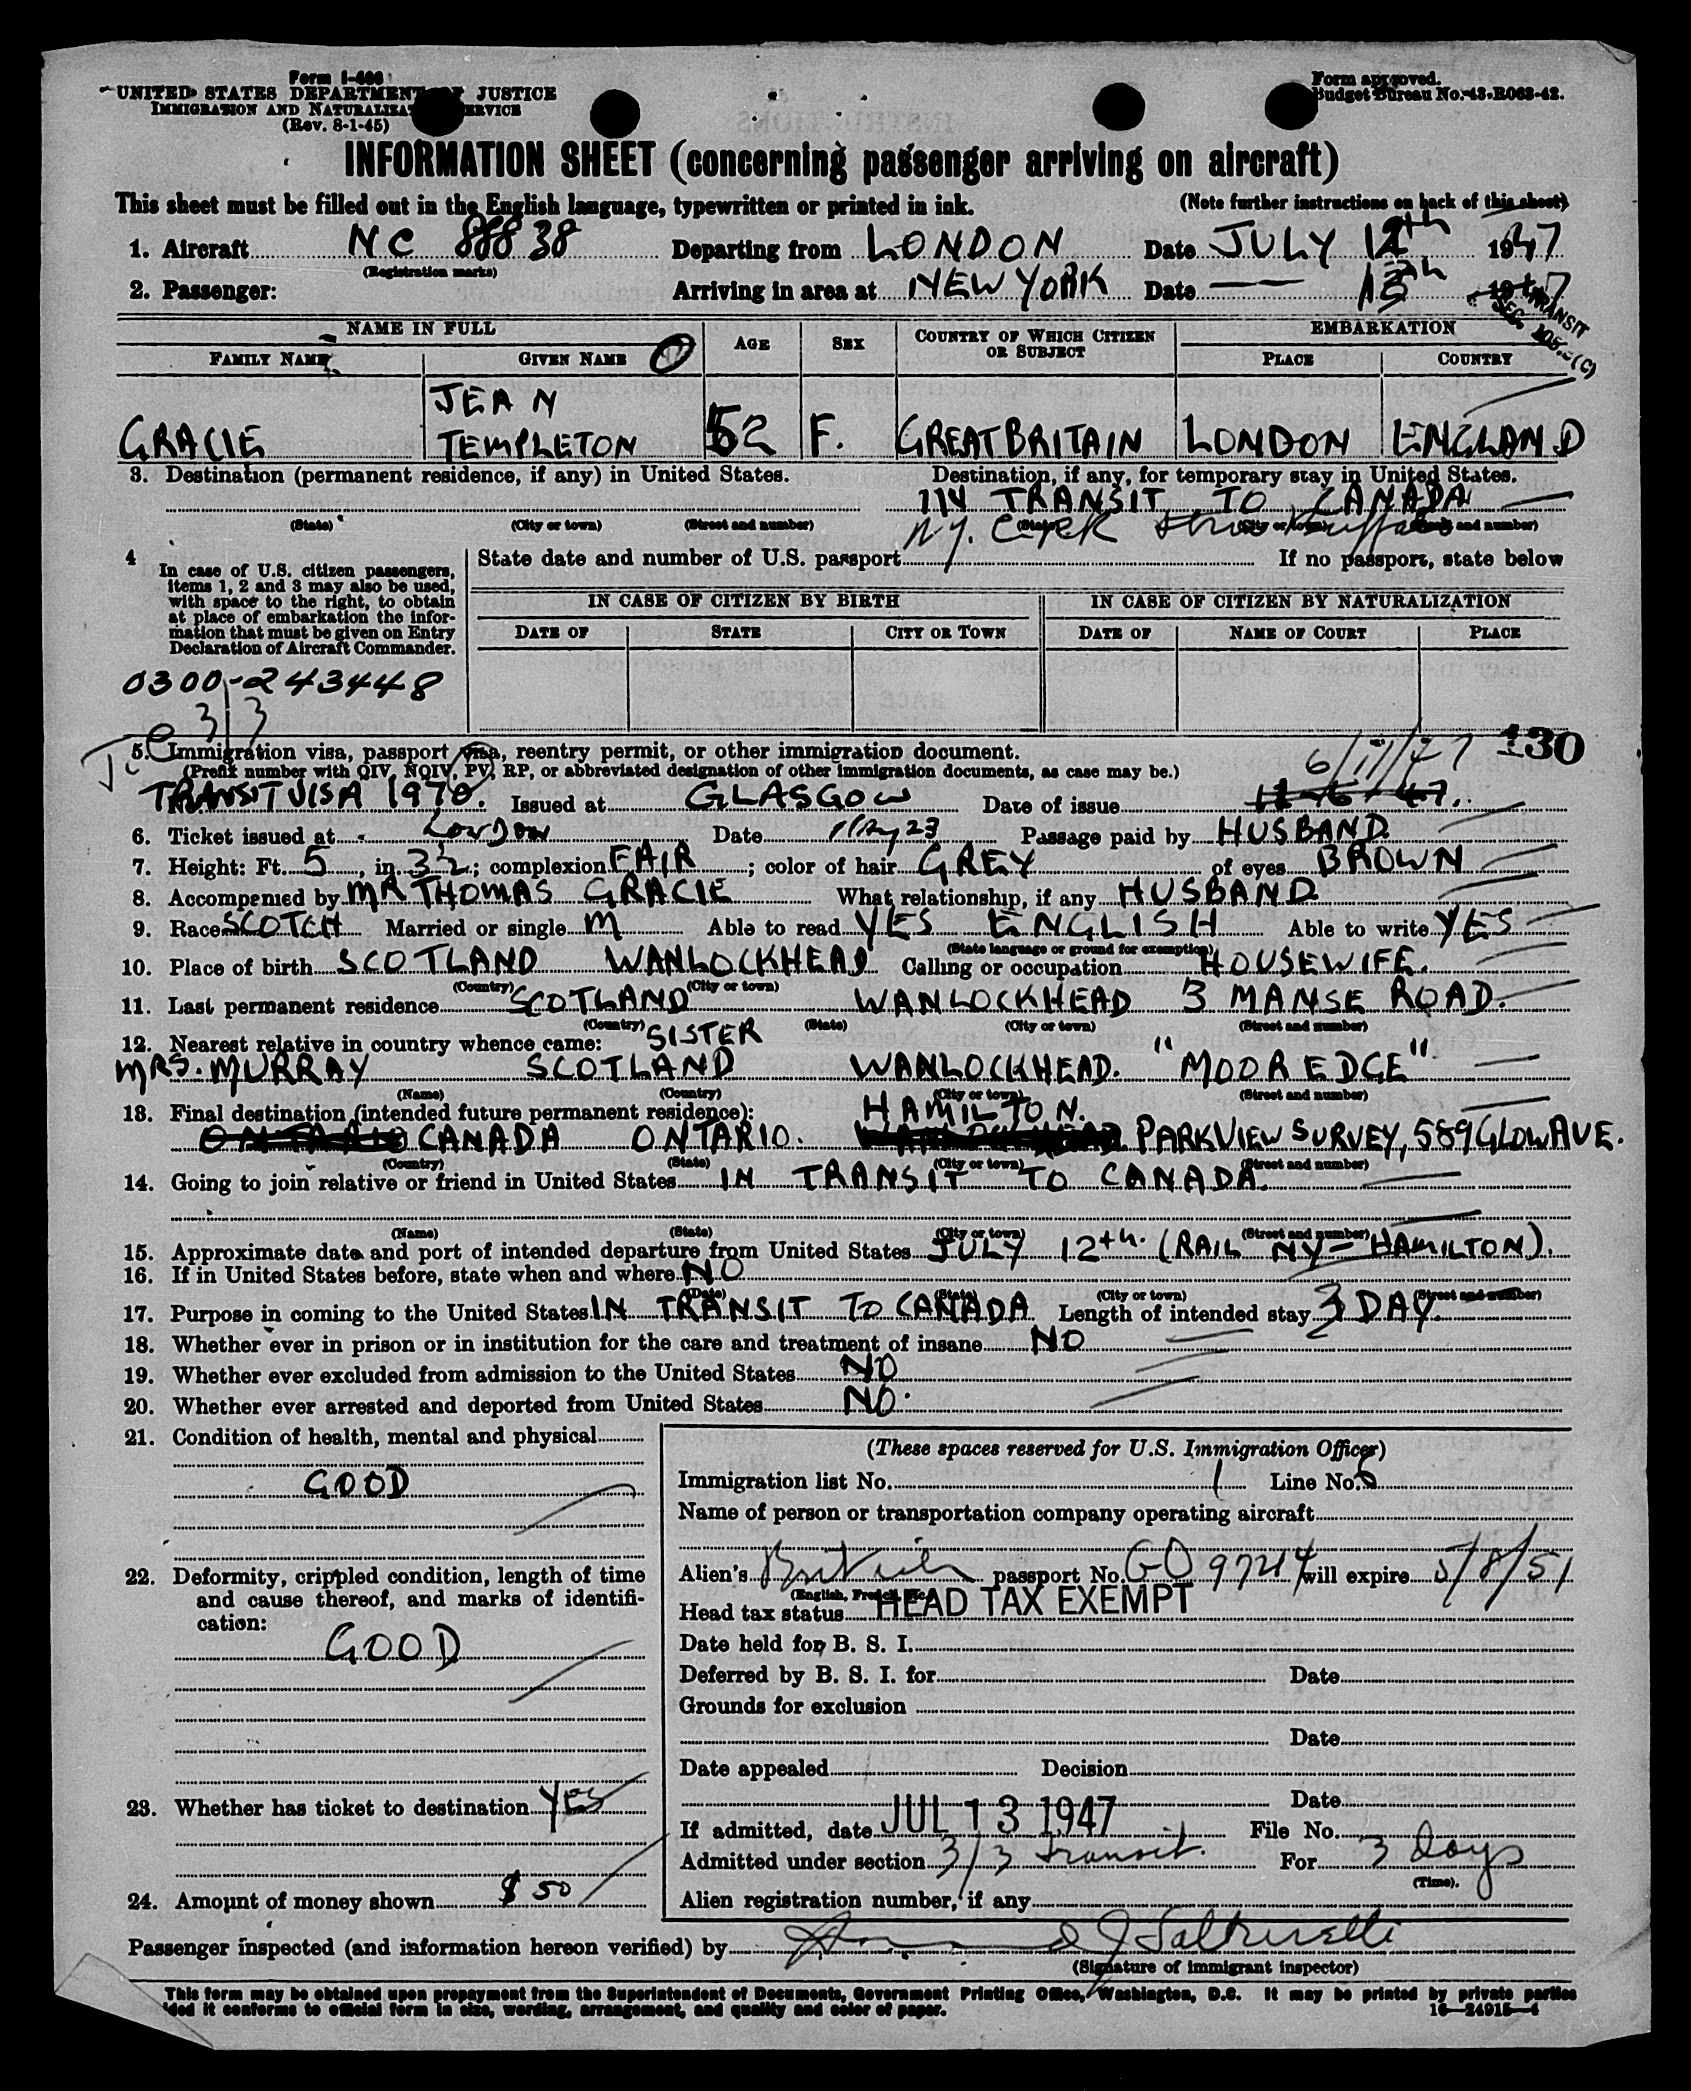 Form I-466
UNITED STATES DEPARTMENT OF JUSTICE
IMMIGRATION AND NATURALIZATION SERVICE
(Rev. 8-1-45)
Form approved.
Budget Bureau No. 43-R063-42.
INFORMATION SHEET (concerning passenger arriving on aircraft)
This sheet must be filled out in the English language, typewritten or printed in ink. (Note further instructions on back of this sheet)
1. Aircraft NC 88838 Departing from LONDON Date JULY 12th 1947
(Registration marks)
2. Passenger: Arriving in area at NEW YORK Date 13th 1947
TRANSIT
SEC. 105.3(C)
NAME IN FULL AGE SEX COUNTRY OF WHICH CITIZEN OR SUBJECT EMBARKATION
FAMILY NAME GIVEN NAME PLACE COUNTRY
GRACIE JEAN TEMPLETON 52 F. GREAT BRITAIN LONDON ENGLAND
3. Destination (permanent residence, if any) in United States. Destination, if any, for temporary stay in United States.
IN TRANSIT TO CANADA
(State) (City or town) (Street and number) (State) (City or town) (Street and number)
4 In case of U.S. citizen passengers, items 1, 2 and 3 may also be used, with space to the right, to obtain at place of embarkation the information that must be given on Entry Declaration of Aircraft Commander.
State date and number of U.S. passport If no passport, state below
IN CASE OF CITIZEN BY BIRTH IN CASE OF CITIZEN BY NATURALIZATION
DATE OF STATE CITY OR TOWN DATE OF NAME OF COURT PLACE
0300-243448
3/3
130
5. Immigration visa, passport visa, reentry permit, or other immigration document. 6/11/47
(Prefix number with QIV, NQIV, PV, RP, or abbreviated designation of other immigration documents, as case may be.)
No. TRANSIT VISA 1970. Issued at GLASGOW Date of issue 11-6-47.
6. Ticket issued at LONDON Date May 23 Passage paid by HUSBAND
7. Height: Ft. 5, in. 3½; complexion FAIR; color of hair GREY of eyes BROWN
8. Accompenied by MR THOMAS GRACIE What relationship, if any HUSBAND
9. Race SCOTCH Married or single M Able to read YES ENGLISH Able to write YES
(State language or ground for exemption)
10. Place of birth SCOTLAND WANLOCKHEAD Calling or occupation HOUSEWIFE.
(Country) (City or town)
11. Last permanent residence SCOTLAND WANLOCKHEAD 3 MANSE ROAD.
(Country) (State) (City or town) (Street and number)
12. Nearest relative in country whence came: SISTER
MRS. MURRAY SCOTLAND WANLOCKHEAD. "MOOR EDGE"
(Name) (Country) (City or town) (Street and number)
13. Final destination (intended future permanent residence): HAMILTON.
CANADA ONTARIO. PARKVIEW SURVEY, 589 GLOW AVE.
(Country) (State) (City or town) (Street and number)
14. Going to join relative or friend in United States IN TRANSIT TO CANADA.
(Name) (State) (City or town) (Street and number)
15. Approximate date and port of intended departure from United States JULY 12th. (RAIL NY - HAMILTON).
16. If in United States before, state when and where NO
(Date) (State) (City or town) (Street and number)
17. Purpose in coming to the United States IN TRANSIT TO CANADA Length of intended stay 3 DAY.
18. Whether ever in prison or in institution for the care and treatment of insane NO
19. Whether ever excluded from admission to the United States NO
20. Whether ever arrested and deported from United States NO.
21. Condition of health, mental and physical
GOOD
22. Deformity, crippled condition, length of time and cause thereof, and marks of identification:
GOOD
23. Whether has ticket to destination YES
24. Amount of money shown $50
(These spaces reserved for U.S. Immigration Officer)
Immigration list No. 1 Line No. 5
Name of person or transportation company operating aircraft
Alien's British passport No. GO 97244 will expire 5/8/51
(English, French, etc.)
Head tax status HEAD TAX EXEMPT
Date held for B. S. I.
Deferred by B. S. I. for Date
Grounds for exclusion
Date
Date appealed Decision
Date
If admitted, date JUL 13 1947 File No.
Admitted under section 3/3 transit. For 3 days
(Time).
Alien registration number, if any
Passenger inspected (and information hereon verified) by
(Signature of immigrant inspector)
This form may be obtained upon prepayment from the Superintendent of Documents, Government Printing Office, Washington, D.C. It may be printed by private parties
ded it conforms to official form in size, wording, arrangement, and quality and color of paper. 16-24915-4